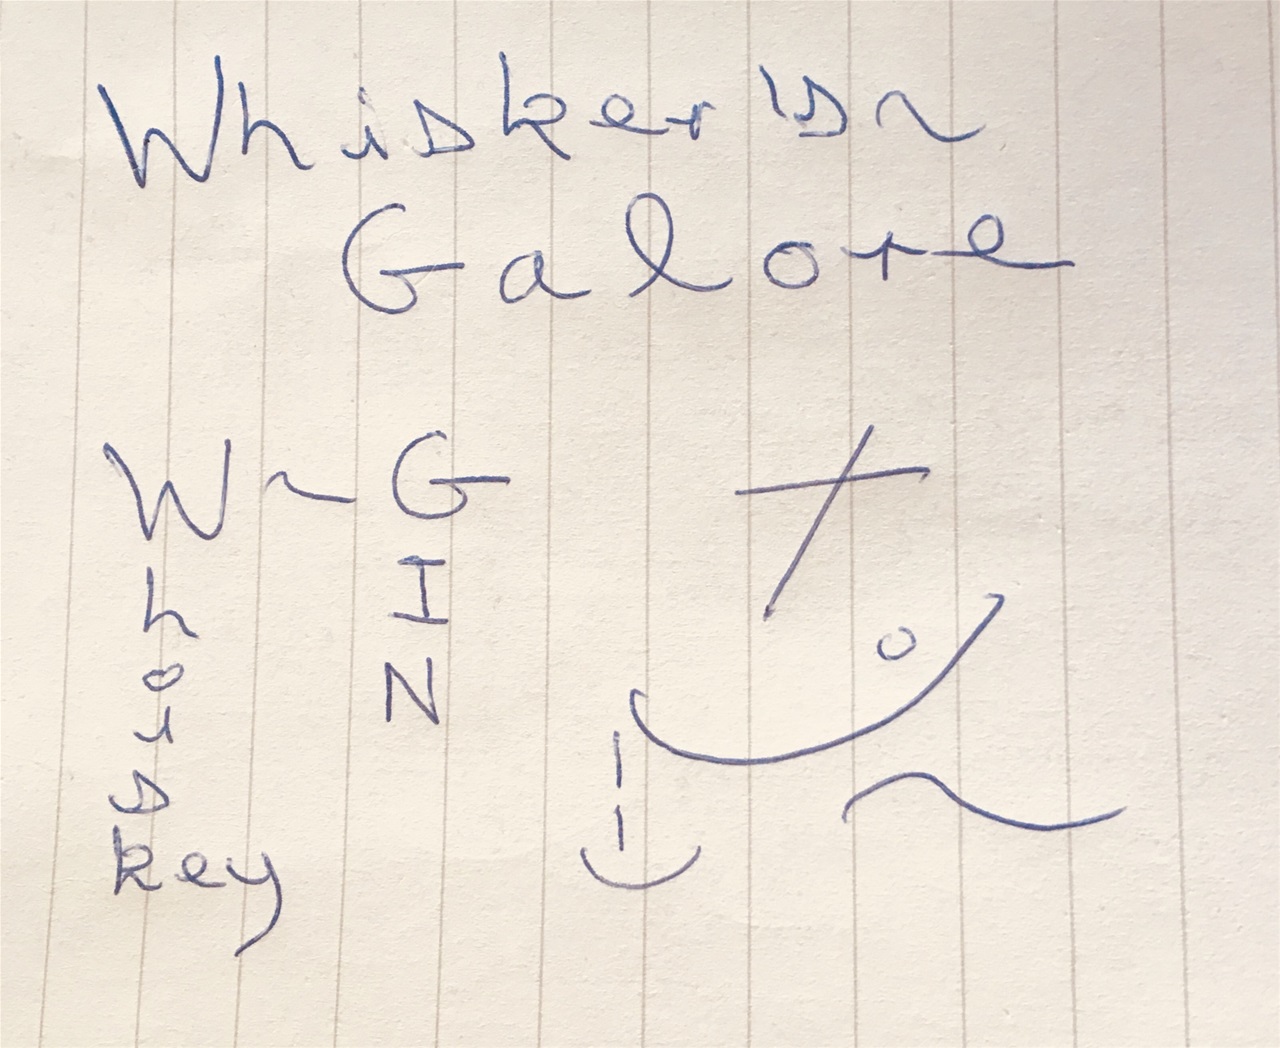 Whisker's ~
Galore
W ~ G
h I
o N
i
s
key